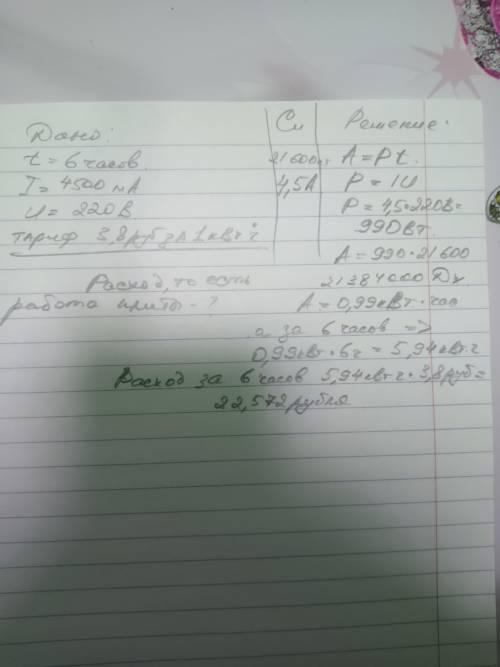 Дано:
t = 6 часов
I = 4500 мА
U = 220 В
тариф 3,8 руб за 1 кВт ч
Расход, то есть
работа плиты - ?
Си
21600
4,5А
Решение:
A = Pt.
P = IU
P = 4,5·220В=
990Вт.
A = 990·21600
21384000 Дж
A = 0,99кВт·час
а за 6 часов =>
0,99кВт·6ч = 5,94кВт·ч
Расход за 6 часов 5,94кВт ч·3,8руб=
22,572рубля